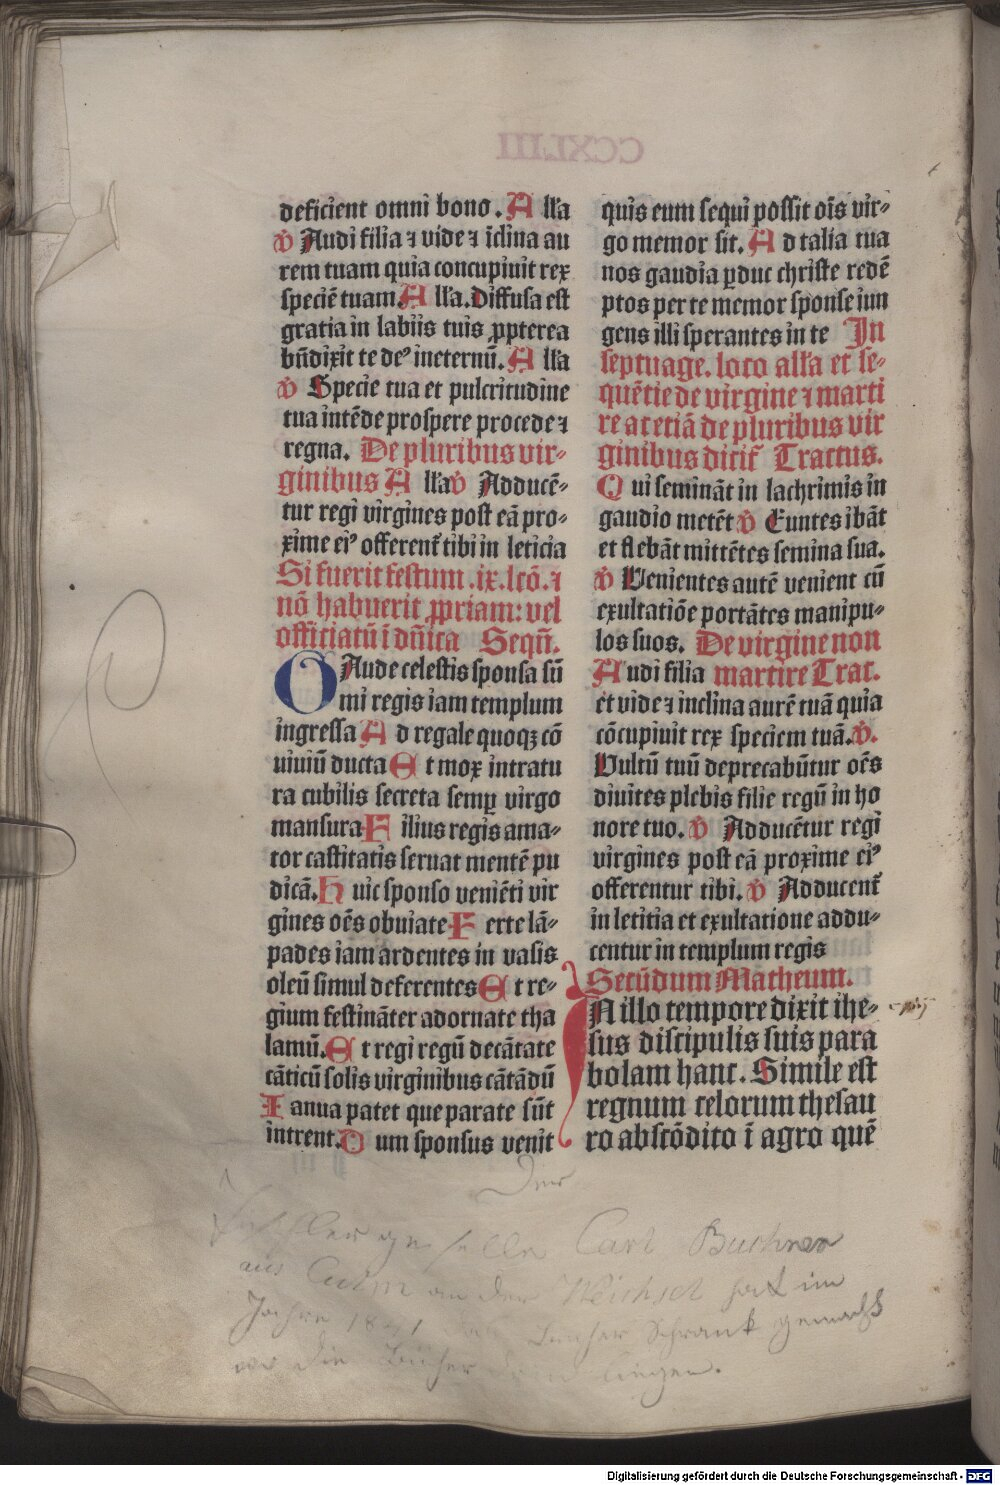 CCXLIII
deficient omni bono. A lľa
v̇ Audi filia ⁊ vide ⁊ īclina au
rem tuam quia concupiuit rex
speciē tuam A lľa. Diffusa est
gratia in labiis tuis ꝓpterea
bn̄dixit te deꝰ in eternū. A lľa
v̇ Specie tua et pulcritudine
tua intēde prospere procede ⁊
regna. De pluribus vir-
ginibus A lľa v̇ Adducē-
tur regi virgines post eā pro-
xime eiꝰ offerent᷑ tibi in leticia
Si fuerit festum .ix. lcō. ⁊
nō habuerit ꝓpriam: vel
officiatū ī dn̄ica Seqn̄.
O Aude celestis sponsa sū
mi regis iam templum
ingressa A d regale quoqꝫ cō
uiuiū ducta E t mox intratu
ra cubilis secreta semꝑ virgo
mansura F ilius regis ama-
tor castitatis seruat mentē pu
dicā. H uic sponso veniēti vir
gines oēs obuiate F erte lā-
pades iam ardentes in vasis
oleū simul deferentes E t re-
gium festināter adornate tha
lamū. E t regi regū decātate
cāticū solis virginibus cātādū
I anua patet que parate sūt
intrent. D um sponsus venit
quis eum sequi possit oīs vir-
go memor sit. A d talia tua
nos gaudia ꝑduc christe redē
ptos per te memor sponse iun
gens illi sperantes in te In
septuage. loco alľa et se-
quētie de virgine ⁊ marti
re ac etiā de pluribus vir
ginibus dicit᷑ Tractus.
Q ui semināt in lachrimis in
gaudio metēt v̇ Euntes ibāt
et flebāt mittētes semina sua.
v̇ Uenientes autē venient cū
exultatiōe portātes manipu-
los suos. De virgine non
A udi filia martire Trac.
et vide ⁊ inclina aurē tuā quia
cōcupiuit rex speciem tuā. v̇.
Uultū tuū deprecabūtur oēs
diuites plebis filie regū in ho
nore tuo. v̇ Adducētur regi
virgines post eā proxime eiꝰ
offerentur tibi. v̇ Adducent᷑
in letitia et exultatione addu-
centur in templum regis
Secūdum Matheum.
IN illo tempore dixit ihe-
sus discipulis suis para
bolam hanc. Simile est
regnum celorum thesau
ro abscōdito ī agro quē
Der
geselle Carl Buchner
aus Culm an der Weichsel hat im
Jahre Bücher Schrank gemacht
die Bücher liegen.
Digitalisierung gefördert durch die Deutsche Forschungsgemeinschaft - DFG